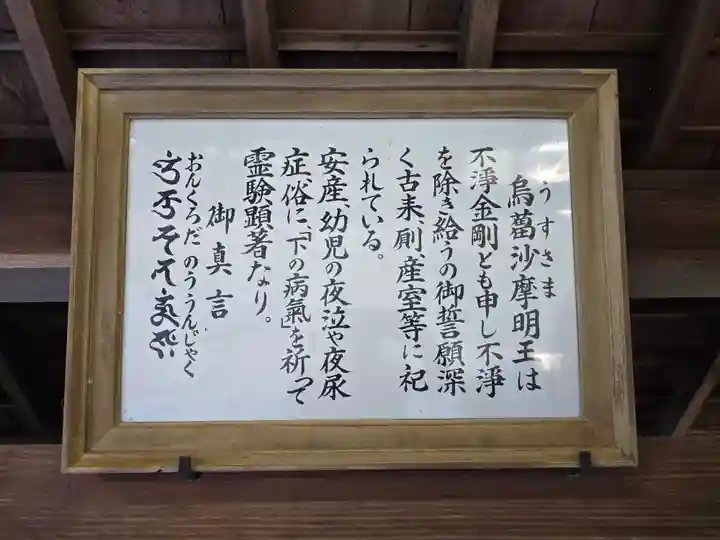 うすさま
烏蒭沙摩明王は
不淨金剛とも申し不淨
を除き給うの御誓願深
く古来、厠、産室等に祀
られている。
安産、幼児の夜泣や夜尿
症、俗に、「下の病氣」を祈って
霊験顕著なり。
御真言
おんくろだ のううん。じゃく